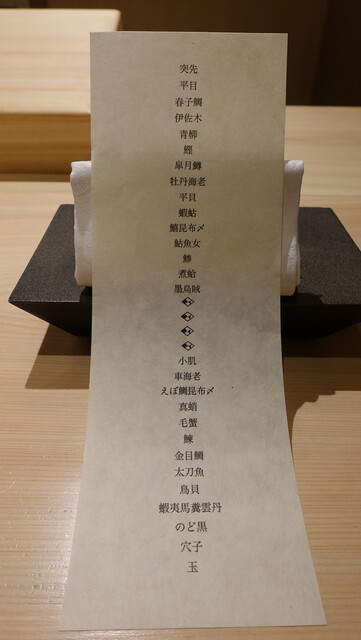 突先
平目
春子鯛
伊佐木
青柳
鰹
皐月鱒
牡丹海老
平貝
蝦蛄
鮪昆布〆
鮎魚女
鯵
煮蛤
墨烏賊
小肌
車海老
えぼ鯛昆布〆
真蛸
毛蟹
鰊
金目鯛
太刀魚
鳥貝
蝦夷馬糞雲丹
のど黒
穴子
玉